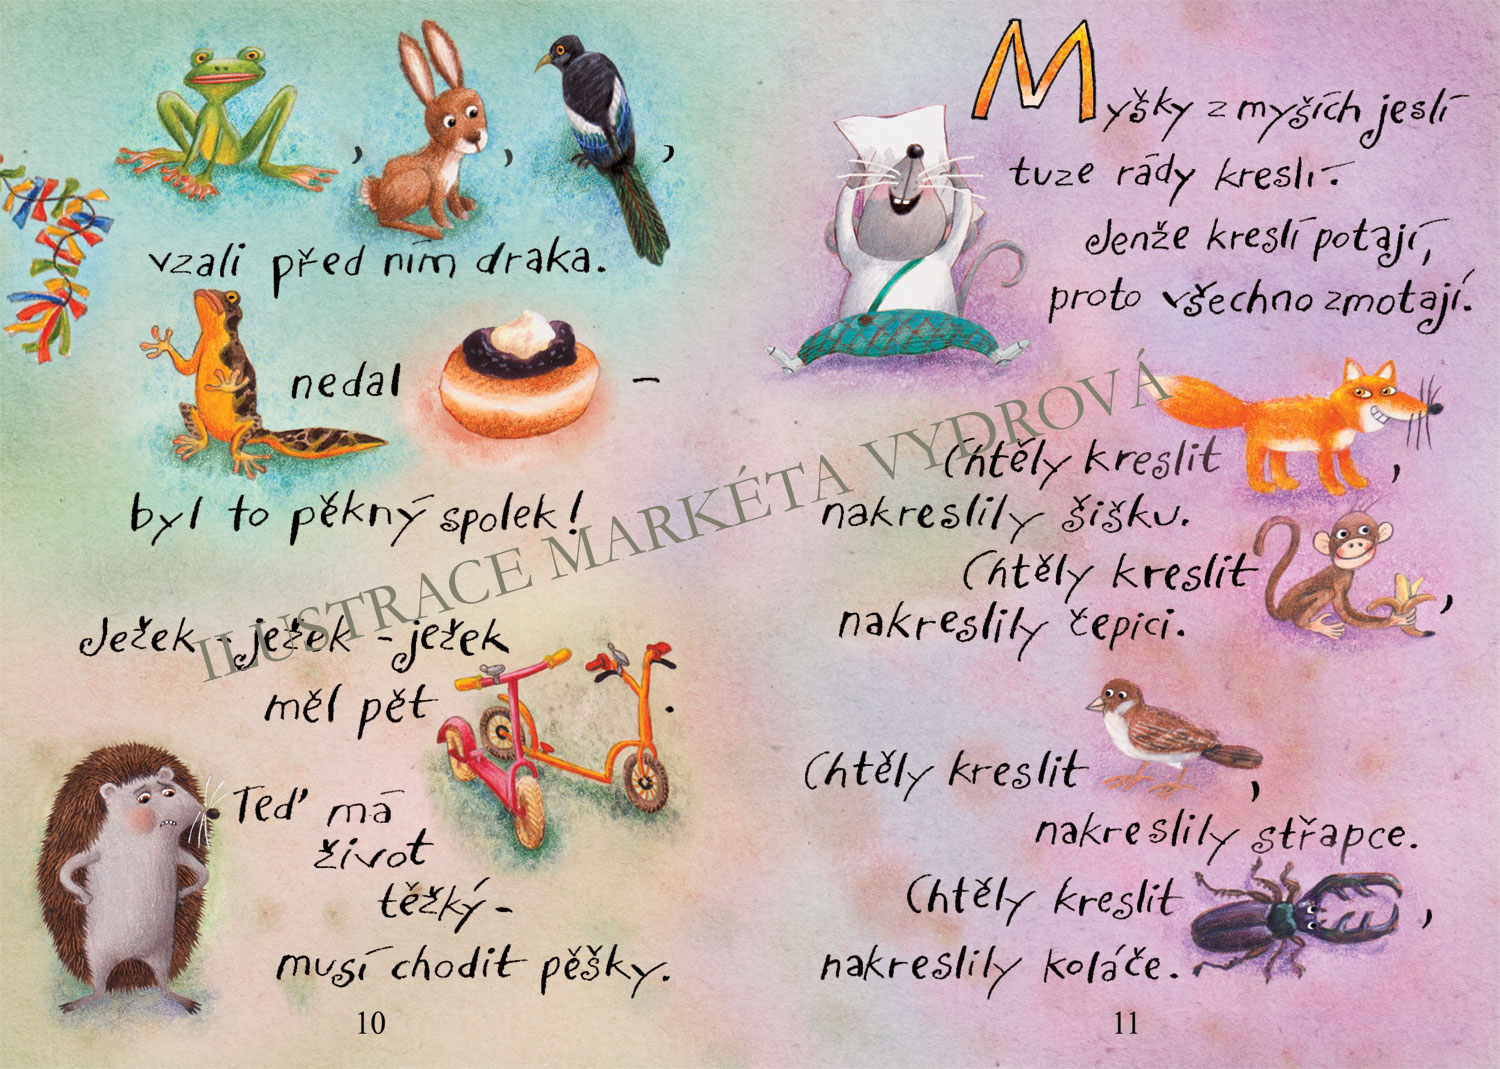 , , ,
vzali před ním draka.
nedal –
byl to pěkný spolek!
Ježek - ježek - ježek
měl pět .
Teď má
život
těžký -
musí chodit pěšky.
10
Myšky z myších jeslí
tuze rády kreslí.
Jenže kreslí potají,
proto všechno zmotají.
Chtěly kreslit ,
nakreslily šišku.
Chtěly kreslit ,
nakreslily čepici.
Chtěly kreslit ,
nakreslily střapce.
Chtěly kreslit ,
nakreslily koláče.
11
ILUSTRACE MARKÉTA VYDROVÁ